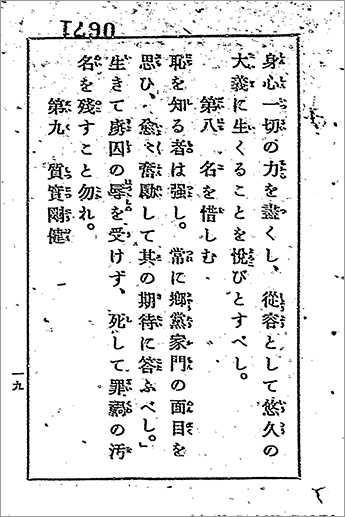 0671
身心一切の力を盡くし、從容として悠久の
大義に生くることを悅びとすべし。
第八　名を惜しむ
恥を知る者は强し。常に鄕黨家門の面目を
思ひ、愈〻奮勵して其の期待に答ふべし。」
生きて虜囚の辱を受けず、死して罪禍の汚
名を殘すこと勿れ。
第九　質實剛健
一九